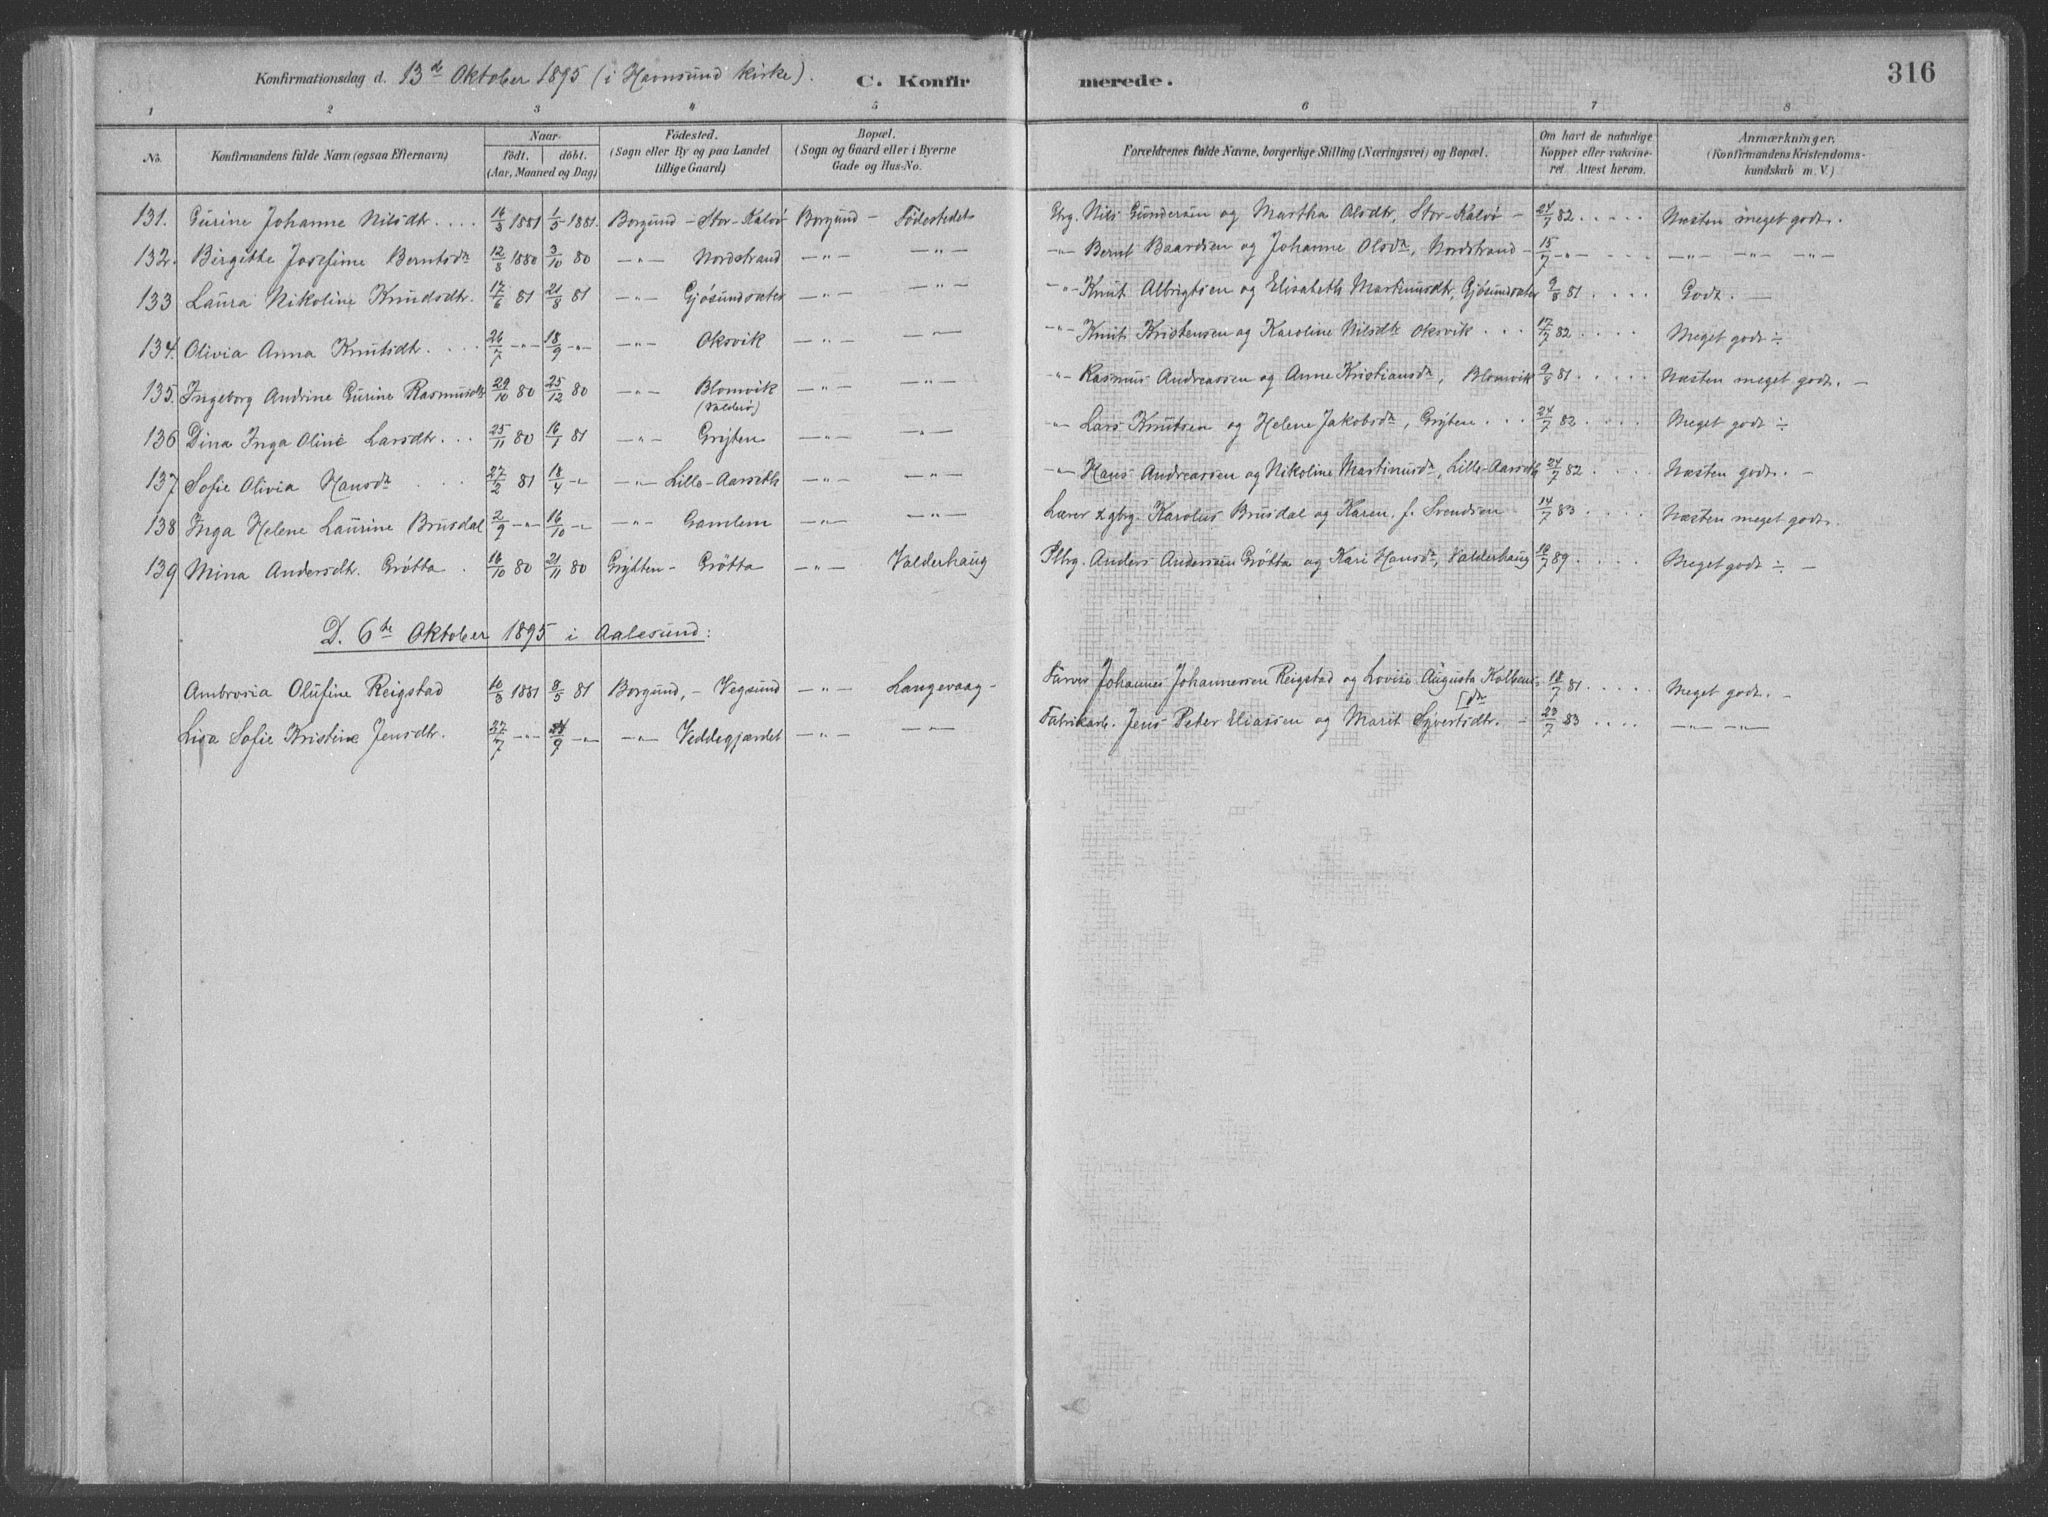 Konfirmationsdag d. 13de Oktober 1895 (i Havnsund Kirke). C. Konfirmerede. 316
1 2 3 4 5 6 7 8
No. Konfirmandens fulde Navn (ogsaa Efternavn) Naar født. døbt. (Aar, Maaned og Dag) Fødested. (Sogn eller By og paa Landet tillige Gaard) Bopæl. (Sogn og Gaard eller i Byerne Gade og Hus-No. Forældrenes fulde Navne, borgerlige Stilling (Næringsvei) og Bopæl. Om havt de naturlige Kopper eller vakcineret. Attest herom. Anmærkninger. (Konfirmandens Kristendomskundskab m. V.)
131. Gurine Johanne Nilsdtr. 16/3 1881 1/5 1881. Borgund - Stor-Kalvø Borgund - Fødestedet Grg. Nils Gundersen og Martha Olsdtr, Stor-Kalvø - 24/7 82 Næsten meget godt.
132. Birgitte Josefine Berntsdr 12/8 1880 3/10 80 -"- Nordstrand -"- -"- -"- Bernt Baardsen og Johanne Olsdr, Nordstrand - 15/7 -"- -"- -"- -"-
133 Laura Nikoline Knudsdtr. 17/6 81 21/8 81 -"- Gjøsundsæter -"- -"- -"- Knut Albrigtsen og Elisabeth Markusdtr, Gjøsundsæter 9/8 81 Godt. -
134. Olivia Anna Knutsdtr. 26/7 -"- 18/9 -"- -"- Oksvik -"- -"- -"- Knut Kristensen og Karoline Nilsdtr Oksvik 17/7 82 Meget godt ÷
135. Ingeborg Andrine Gurine Rasmusdtr 29/10 80 25/12 80 -"- Blomvik (Valderø) -"- -"- -"- Rasmus Andreassen og Anne Kristiansdr, Blomvik 9/8 81 Næsten meget godt. -
136 Dina Inga Oline Larsdtr. 25/11 80 16/1 81 -"- Gryten -"- -"- -"- Lars Knutsen og Helene Jakobsdr, Gryten 24/7 82 Meget godt ÷
137 Sofie Olivia Hansdr 27/2 81 18/4 -"- -"- Lille-Aarseth -"- -"- -"- Hans Andreassen og Nikoline Martinusdr, Lille-Aarseth 24/7 82 Næsten godt. -
138 Inga Helene Laurine Brusdal 2/9 -"- 16/10 -"- -"- Gamlem -"- -"- Lærer & gbrg. Karolus Brusdal og Karen f. Svendsen 14/7 83 Næsten meget godt.
139 Mina Andersdtr. Grøtta 16/10 80 21/11 80 Grytten - Grøtta -"- Valderhaug Pltrg. Anders Andersen Grøtta og Kari Hansdr, Valderhaug 10/7 89 Meget godt ÷ -
D. 6te Oktober 1895 i Aalesund:
Ambrosia Olufine Reigstad 16/3 1881 8/5 81 Borgund, - Vegsund -"- Langevaag - Farver Johannes Johannessen Reigstad og Lovise Augusta Kolbensdtr 18/7 81 Meget godt. -
Lisa Sofie Kristine Jensdtr. 27/7 -"- 24/9 -"- -"- Veddegjærdet -"- -"- Fabrikarb. Jens Peter Eliassen og Marit Syvertsdtr. - 23/7 83 -"- -"-